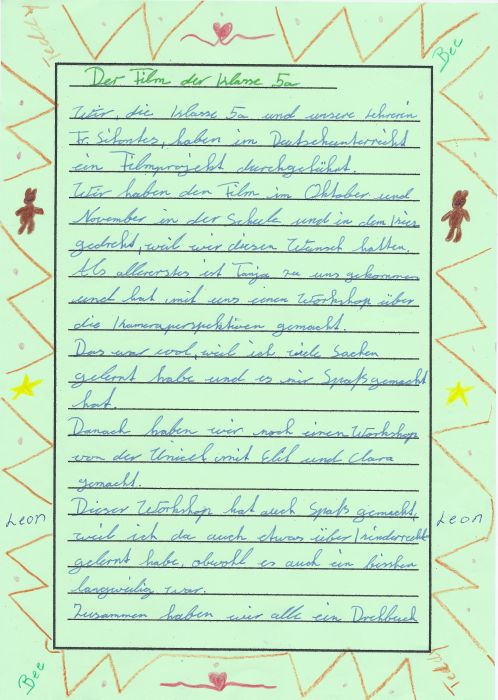 Teddy
Bee
Der Film der Klasse 5a
Wir, die Klasse 5a und unsere Lehrerin
Fr. Sifontes, haben im Deutschunterricht
ein Filmprojekt durchgeführt.
Wir haben den Film im Oktober und
November in der Schule und in dem Kiez
gedreht, weil wir diesen Wunsch hatten.
Als allererstes ist Tanja zu uns gekommen
und hat mit uns einen Workshop über
die Kameraperspektiven gemacht.
Das war cool, weil ich viele Sachen
gelernt habe und es mir Spaß gemacht
hat.
Danach haben wir noch einen Workshop
von der Unicef mit Elif und Clara
gemacht.
Dieser Workshop hat auch Spaß gemacht,
weil ich da auch etwas über Kinderrechte
gelernt habe, obwohl es auch ein bisschen
langweilig war.
Zusammen haben wir alle ein Drehbuch
Leon
Leon
Bee
Teddy